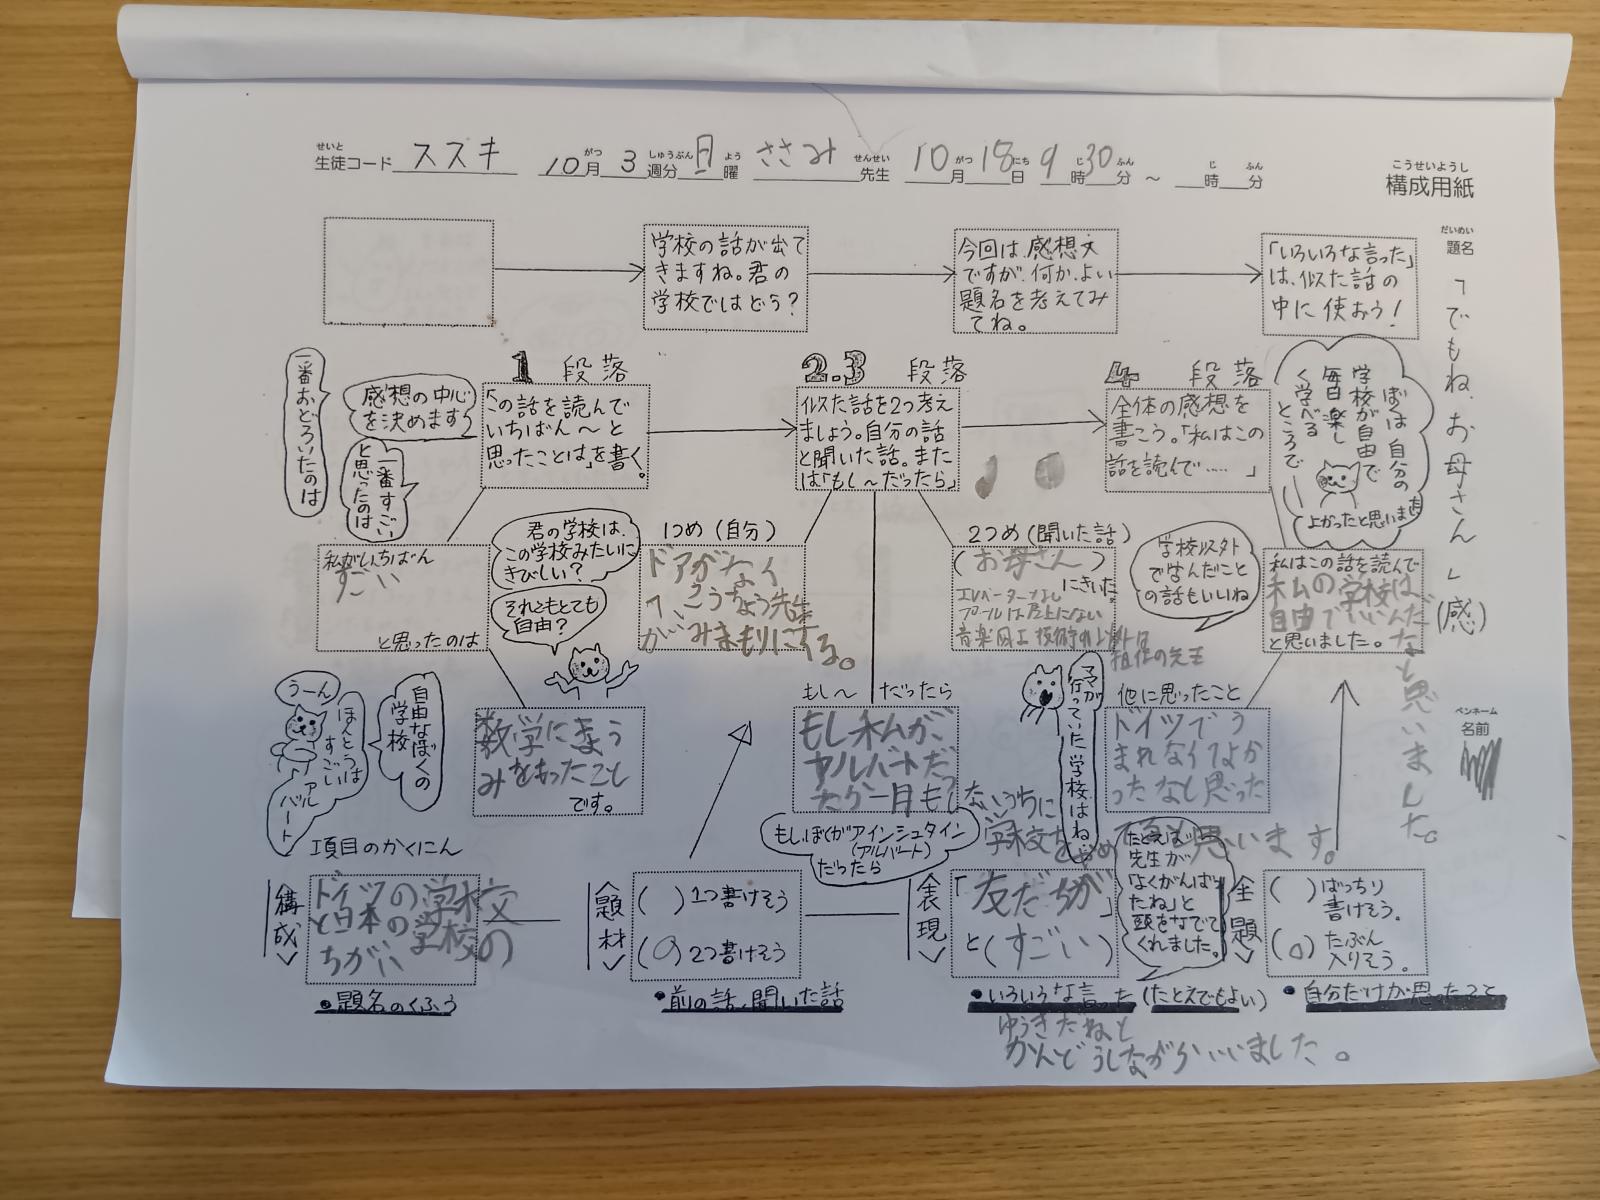 せいと
生徒コード スズキ 10月 3週分 日曜 ささみ 先生 10月18日 9時30分 ～ 時 分
がつ しゅうぶん よう せんせい がつ にち じ ふん じ ふん
こうせいようし
構成用紙
だいめい
題名
「でもね、お母さん」(感)
ペンネーム
名前
学校の話が出て
きますね。君の
学校ではどう?
今回は、感想文
ですが、何か、よい
題名を考えてみ
てね。
「いろいろな言った」
は、似た話の
中に使おう!
1 段落
一番おどろいたのは
感想の中心
を決めます
一番すごい
と思ったのは
「この話を読んで
いちばん～と
思ったことは」を書く。
2.3 段落
似た話を2つ考え
ましょう。自分の話
と聞いた話。また
は「もし～だったら」
4 段落
全体の感想を
書こう。「私はこの
話を読んで……」
ぼくは自分の
学校が自由で
毎日楽し
く学べる
ところで
よかったと思います
私がいちばん
すごい
と思ったのは
君の学校は、
この学校みたいに
きびしい?
それともとても
自由?
1つめ(自分)
ドアがなく
て、こうちょう先生
が みまもりにくる。
2つめ(聞いた話)
(お母さん)
にきいた。
エレベーターなし
プールは屋上にない
音楽図工技術
担任の先生
学校以外
で学んだこと
の話もいいね
私はこの話を読んで
私の学校は
自由でいいんだ
なと思いました。
と思いました。
うーん
ほんとうは
すごい
アル
バート
自由なぼくの
学校
数学にきょう
みをもったこと
です。
もし～だったら
もし私が、
アルバートだっ
たら一月もしないうちに
学校をやめると思います。
もしぼくがアインシュタイン
(アルバート)
だったら
ママが
行っていた学校はね
他に思ったこと
ドイツでう
まれなくてよか
ったなと思った
項目のかくにん
<構成>
ドイツの学校
と日本の学校の
ちがい
●題名のくふう
<題材>
( )1つ書けそう
(○)2つ書けそう
●前の話、聞いた話
<表現>
「友だちが」
と(すごい)
たとえば
先生が
「よくがんばっ
たね」と
頭をなでて
くれました。
●いろいろな言った(たとえでもよい)
ゆうきだねと
かんどうしながらいいました。
<主題>
( )ばっちり
書けそう。
(○)たぶん
入りそう。
●自分だけが思ったこと